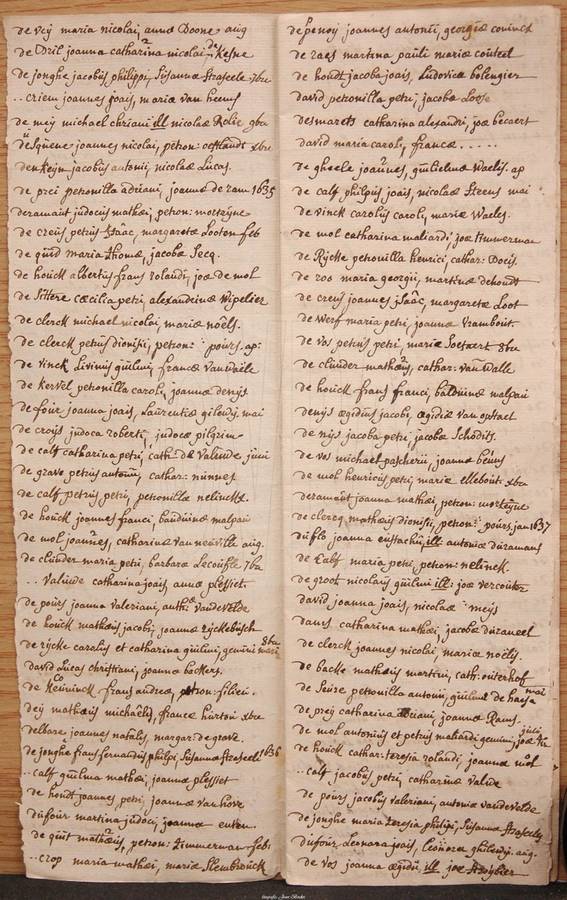 de vey maria nicolai, annæ Doone aug
de Dril joanna catharina nicolai, de Kesne
de jonghe jacobus philippi, Susannæ Straseele 7bre
..criem joannes joais, mariæ van heems
de mey michael chriani ill nicolaæ Relie 9bre
du Squene joannes nicolai, petron: ocstlandt xbre
den Keyn jacobus antonii, nicolaæ Lucas.
de prei petronilla adriani, joannæ de ram 1635
deramaut judocus mathæi, petron: mortayne
de creus petrus Isaac, margaretæ Looten feb
de quid maria thomæ, jacobæ Secq.
de houck albertus frans rolandi, joæ de mol
de Sittere cæcilia petri, alexandrinæ Wipelier
de clerck michael nicolai, mariæ noëls.
de clerck petrus dionisii, petron: pours. ap:
de vinck Livinus guilmi, francæ Vandaële
de Kervel petronilla caroli, joannæ denys
de four joanna joais, Laurentiæ gilewy. mai
de croys judoca roberti, judocæ pilgrim
de calf catharina petri, cath: de Valuwe juni
de grave petrus antonii, cathar: nunnes
de calf petrus petri, petronilla nelinckx.
de houck joannes franci, bauduinæ malpaix
de mol joannes, catharinæ van neuville aug.
de clunder maria petri, barbaræ Lecousle 7bre
.. valuwe catharina joais annæ plessiet
de pours joanna valeriani, anth: vandevelde
de houck mathæus jacobi, joannæ ryckebusch
de rycke carolus et catharina guilmi, gemini 8bre
david Lucas christiani, joannæ backers.
de Coninck frans andreæ, petron: filieu.
dey mathæus michaelis, francæ hurtou xbre
delbare joannes natalis, margar: de grave.
de jonghe frans fernandus philpi, Susannæ Straseele 1636
..calf guilma mathæi, joannæ plessiet
de houdt joannes, petri, joannæ van hove
dufour martina judoci, joannæ
de quit mathæus, petron: Zimmerman feb:
..crop maria mathæi, mariæ Slembrouck
de penoy joannes antonii, georgiæ
de raes martina pauli mariæ couteel
de houdt jacoba joais, Ludovicæ bolengier
david petronilla petri, jacobæ Loose
desmarets catharina alexandri, joæ becaert
david maria caroli, francæ ......
de gheele joannes, guilielmæ Waelis. ap
de calf philpus joais, nicolaæ Steens mai
de vinck carolus caroli, mariæ Waeles.
de mol catharina maliardi, joæ timmerman
de Rycke petronilla henrici, cathar: Doeis.
de roo maria georgii, martinæ dehoudt
de creus joannes Isaac, margaretæ Loot
de Werf maria petri, joannæ Vrambout.
de vos petrus petri mariæ Soetaert 8bre
de clunder mathæus, cathar: van Dalle
de houck frans franci, balduinæ malpaix
denys ægidius jacobi, ægidiæ van opstael
de nys jacoba petri, jacobæ Schodits.
de vos michael pascherii, joannæ beuns
de mol henricus petri, mariæ ellebout. xbre
deramaut joanna mathæi, petron: morteyne
de clercq mathæus dionisii, petron: pours. jan 1637
duflo joanna eustachii, ill. antoniæ duramans
de Calf maria petri, petron: nelinck.
de groot nicolaus guilmi ill: joæ vercouter
david joanna joais, nicolaæ meys
daurs catharina mathæi, jacobæ duraneel
de clerck joannes nicolai mariæ noëls.
de backe mathæus martini, cath: outerhof
de Seuse petronilla antonii, guilmæ de haese mai
de prey catharina adriani joannæ Rams.
de mol antonius et petrus maliardi gemini, joæ juni
de houck cathar: teresia rolandi, joannæ mol
..calf jacobus petri, catharinæ value
de pours jacobus valeriani, antoniæ vandevelde
de jonghe maria teresia philipi, Susannæ Straseele
dufour Leonara joais, Leonoræ ghilewy. aug.
de vos joanna ægidii, ill joæ